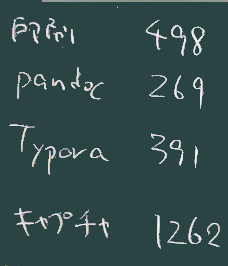 印刷 498
pandoc 269
Typora 391
キャプチャ 1262